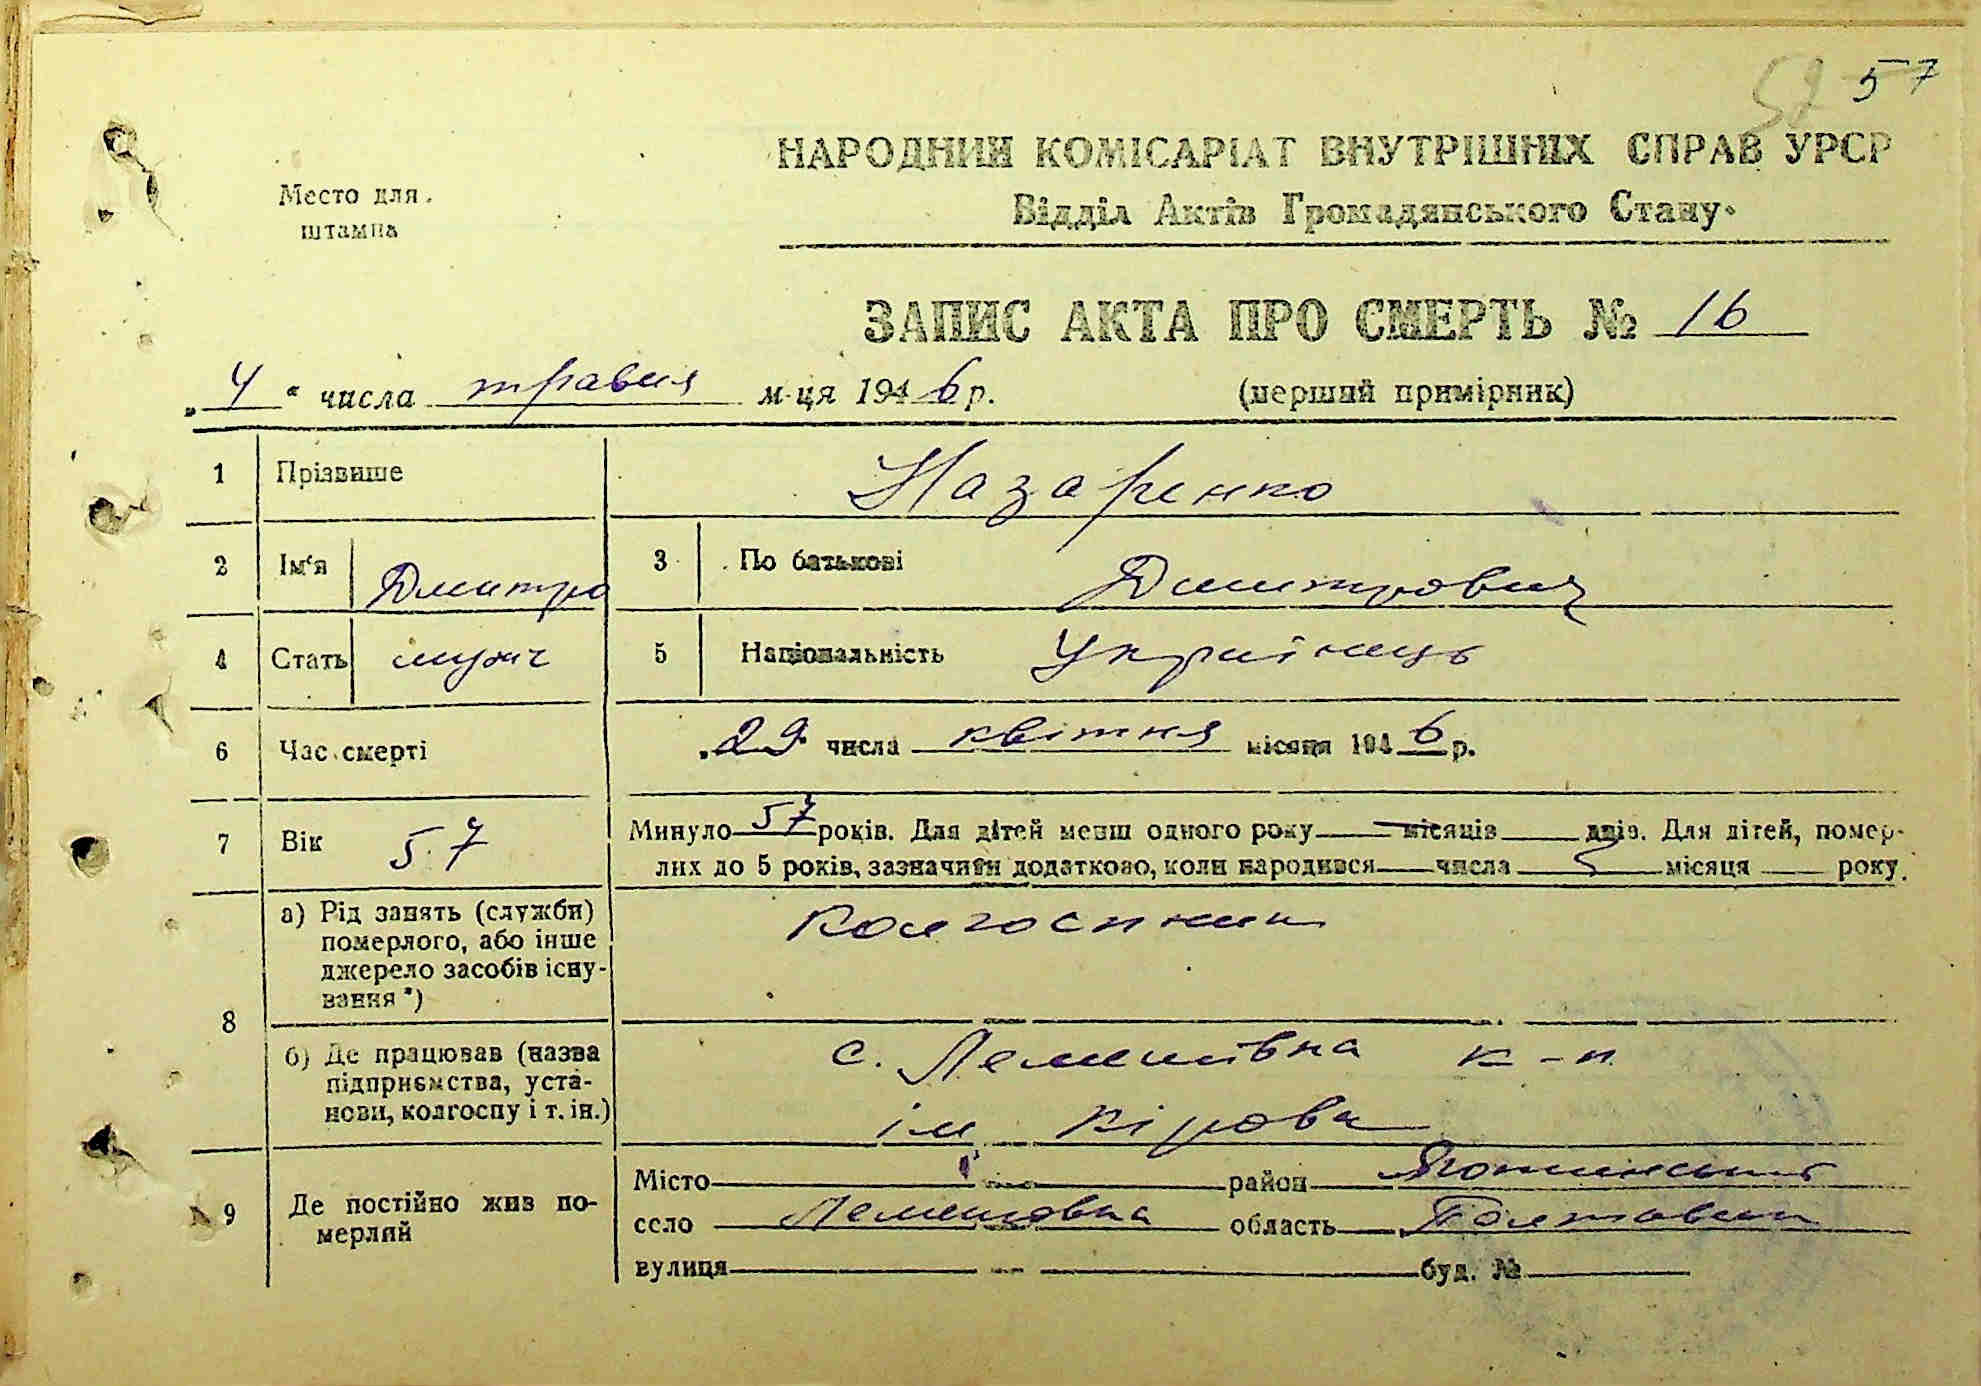 57 57
НАРОДНИЙ КОМІСАРІАТ ВНУТРІШНІХ СПРАВ УРСР
Відділ Актів Громадянського Стану
Место для
штампа
ЗАПИС АКТА ПРО СМЕРТЬ № 16
„4“ числа травня м-ця 1946 р. (перший примірник)
1 Прізвише Назаренко
2 Ім'я Дмитро 3 По батькові Дмитрович
4 Стать муж 5 Національність Українець
6 Час смерті „29" числа квітня місяця 1946 р.
7 Вік 57 Минуло 57 років. Для дітей менш одного року — місяців — днів. Для дітей, помер-
лих до 5 років, зазначити додатково, коли народився — числа — місяця — року.
8 а) Рід занять (служби)
померлого, або інше
джерело засобів існу-
вання *)
Колгоспник
б) Де працював (назва
підприємства, уста-
нови, колгоспу і т. ін.)
с. Лемешівка к-п
ім Кірова
9 Де постійно жив по-
мерлий
Місто — район Яготинський
село Лемешовка область Полтавськ
вулиця — буд. №